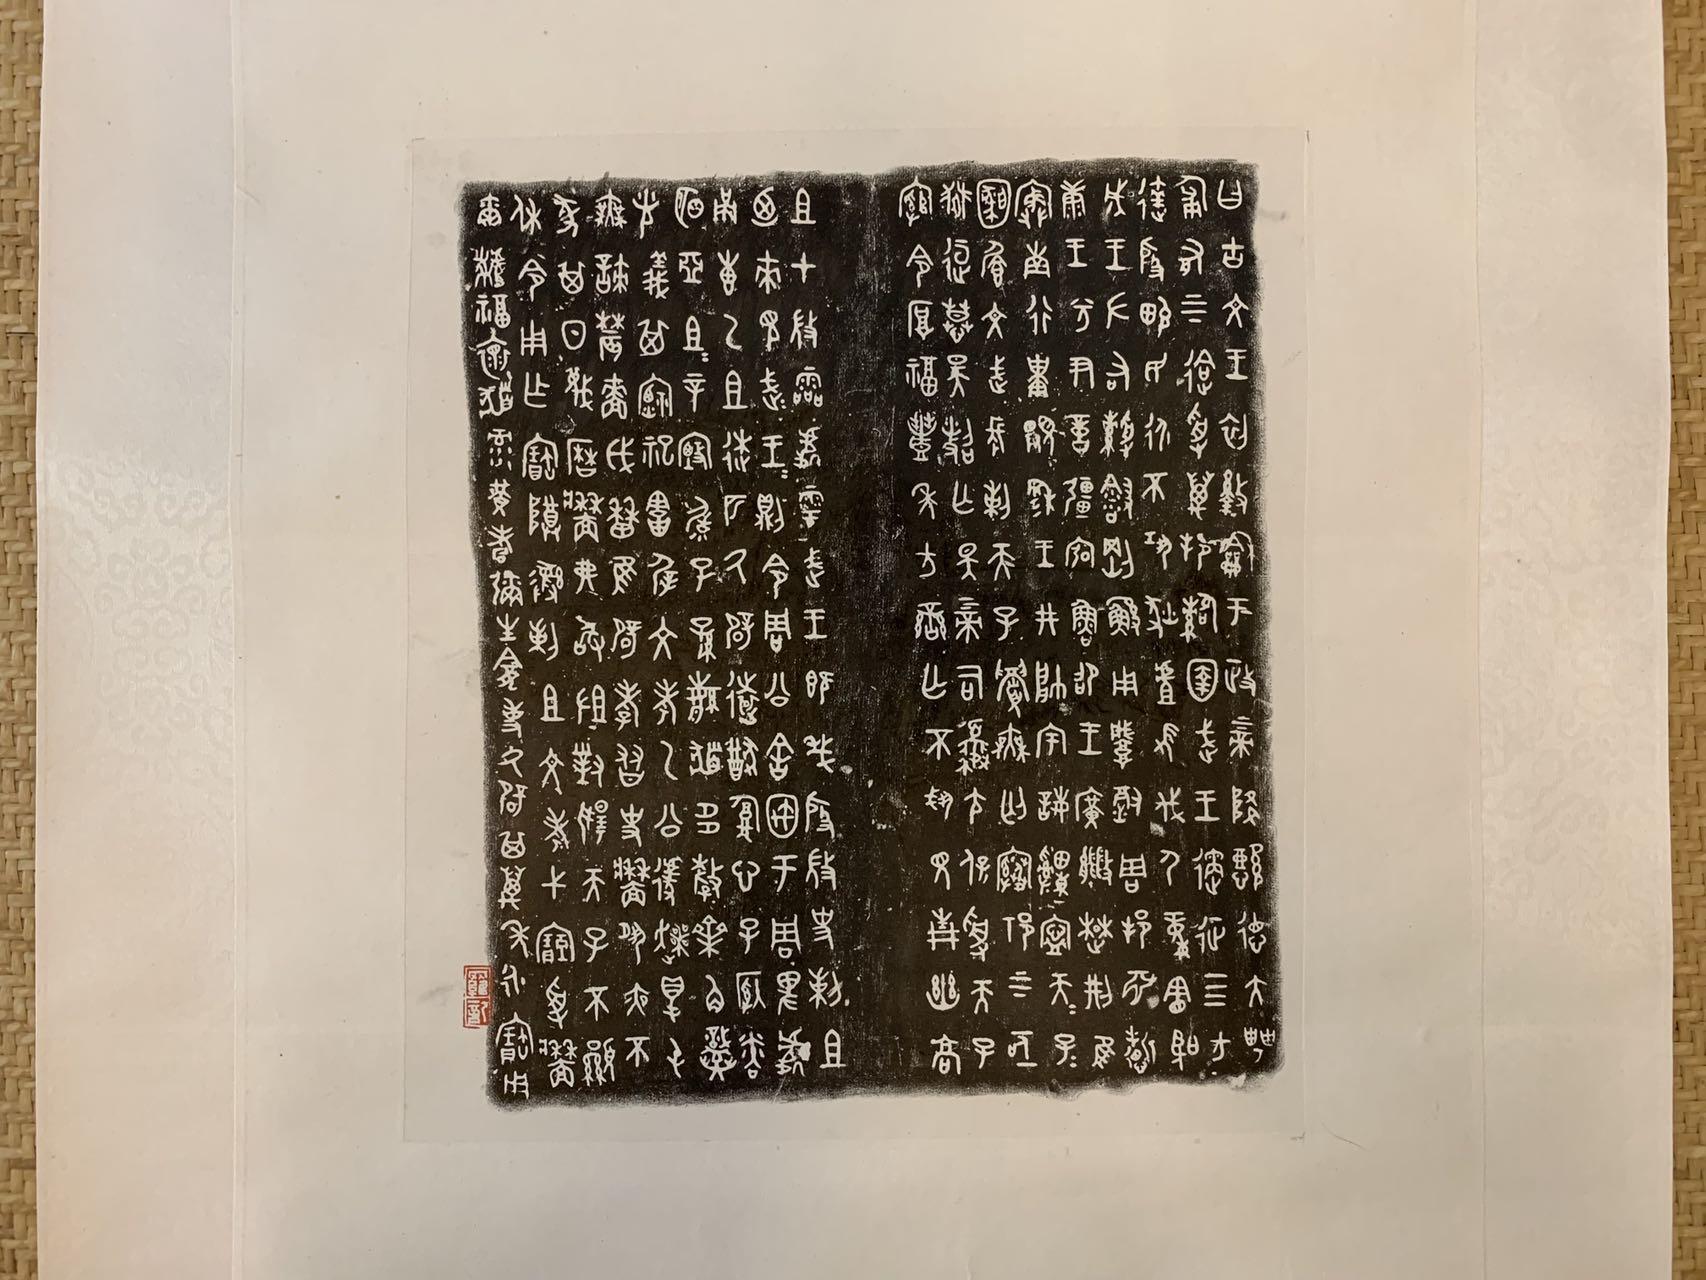 曰古文王初盭龢于政上帝降懿德大甹
匍有上下迨受萬邦𩛥圉武王遹征四方
達殷畯民永不鞏狄虘𢓈伐夷童憲聖
成王左右綬剛鯀用肇徹周邦淵哲
康王兮尹億疆宖魯邵王廣能楚荊隹
寏南行祗𫳅穆王井帥宇誨申寧天子
天子𬮿文武長剌天子眉無匄寋祁上下
亟獄慕昊照亡斁上帝司夒尢保受天子
綰令厚福豐年方蠻亡不𢦚見青幽高
且甲微靈處雩武王既𢦏殷微史剌且
廼來見武王武王則令周公舍㝢于周卑處
甬叀乙且逑匹氒辟遠猷腹心子納粦
明亞且且辛𡪀毓子孫繁祓多釐齊角熾
光義其禋祀㝬遲文考乙公遽爽得屯
無諫農穡戉曆隹辟孝友史牆夙夜不
彖其日蔑曆牆弗敢沮對揚天子不顯
休令用乍寶尊彝剌且文考弋𥧂受牆
爾𪓐福懷祓彔黃耇彌生龕事氒辟其萬年永寶用